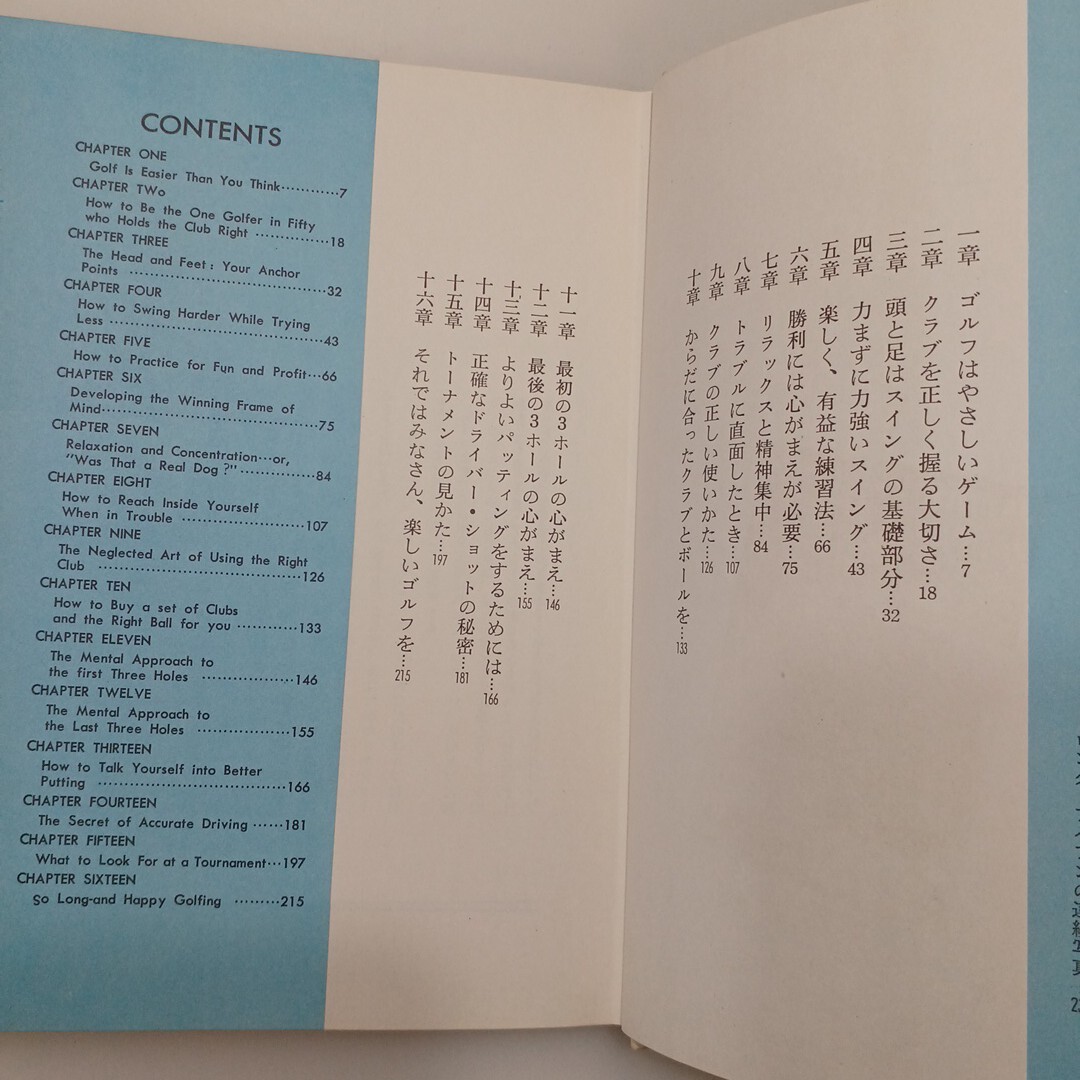 CONTENTS
CHAPTER ONE
Golf Is Easier Than You Think…………7
CHAPTER TWo
How to Be the One Golfer in Fifty
who Holds the Club Right ……………18
CHAPTER THREE
The Head and Feet: Your Anchor
Points ……………………………………32
CHAPTER FOUR
How to Swing Harder While Trying
Less ………………………………………43
CHAPTER FIVE
How to Practice for Fun and Profit…66
CHAPTER SIX
Developing the Winning Frame of
Mind………………………………………75
CHAPTER SEVEN
Relaxation and Concentration…or,
"Was That a Real Dog?"……………84
CHAPTER EIGHT
How to Reach Inside Yourself
When in Trouble ………………………107
CHAPTER NINE
The Neglected Art of Using the Right
Club ………………………………………126
CHAPTER TEN
How to Buy a set of Clubs
and the Right Ball for you …………133
CHAPTER ELEVEN
The Mental Approach to
the first Three Holes …………………146
CHAPTER TWELVE
The Mental Approach to
the Last Three Holes …………………155
CHAPTER THIRTEEN
How to Talk Yourself into Better
Putting ……………………………………166
CHAPTER FOURTEEN
The Secret of Accurate Driving ……181
CHAPTER FIFTEEN
What to Look For at a Tournament…197
CHAPTER SIXTEEN
So Long-and Happy Golfing ………215
一章 ゴルフはやさしいゲーム…7
二章 クラブを正しく握る大切さ…18
三章 頭と足はスイングの基礎部分…32
四章 力まずに力強いスイング…43
五章 楽しく、有益な練習法…66
六章 勝利には心がまえが必要…75
七章 リラックスと精神集中…84
八章 トラブルに直面したとき…107
九章 クラブの正しい使いかた…126
十章 からだに合ったクラブとボールを…133
十一章 最初の3ホールの心がまえ…146
十二章 最後の3ホールの心がまえ…155
十三章 よりよいパッティングをするためには…166
十四章 正確なドライバー・ショットの秘密…181
十五章 トーナメントの見かた…197
十六章 それではみなさん、楽しいゴルフを…215